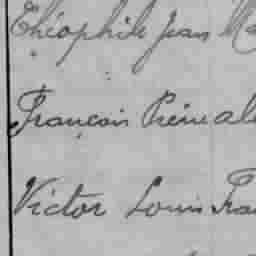 Théophile Jean Ma
François
Victor Louis Fra